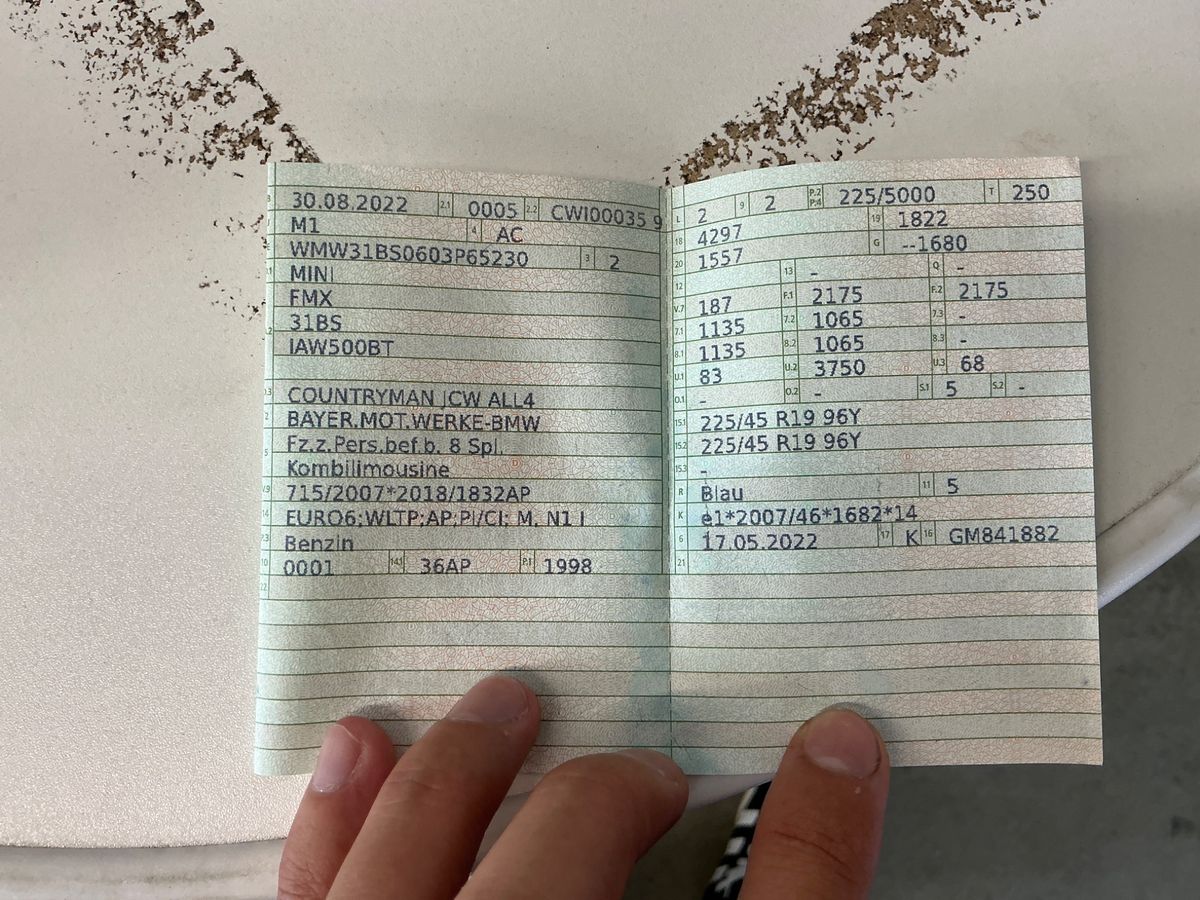 30.08.2022 2.1 0005 2.2 CWI00035 9
M1 4 AC
WMW31BS0603P65230 3 2
MINI
FMX
31BS
IAW500BT
COUNTRYMAN JCW ALL4
BAYER.MOT.WERKE-BMW
Fz.z.Pers.bef.b. 8 Spl.
Kombilimousine
715/2007*2018/1832AP
EURO6;WLTP;AP;PI/CI; M, N1 I
Benzin
0001 14.1 36AP P.1 1998
L 2 9 2 P.2 P.4 225/5000 T 250
18 4297 19 1822
20 1557 G --1680
12 13 - Q -
V.7 187 F.1 2175 F.2 2175
7.1 1135 7.2 1065 7.3 -
8.1 1135 8.2 1065 8.3 -
U.1 83 U.2 3750 U.3 68
O.1 - O.2 - S.1 5 S.2 -
15.1 225/45 R19 96Y
15.2 225/45 R19 96Y
15.3 -
R Blau 11 5
K e1*2007/46*1682*14
6 17.05.2022 17 K 16 GM841882
21